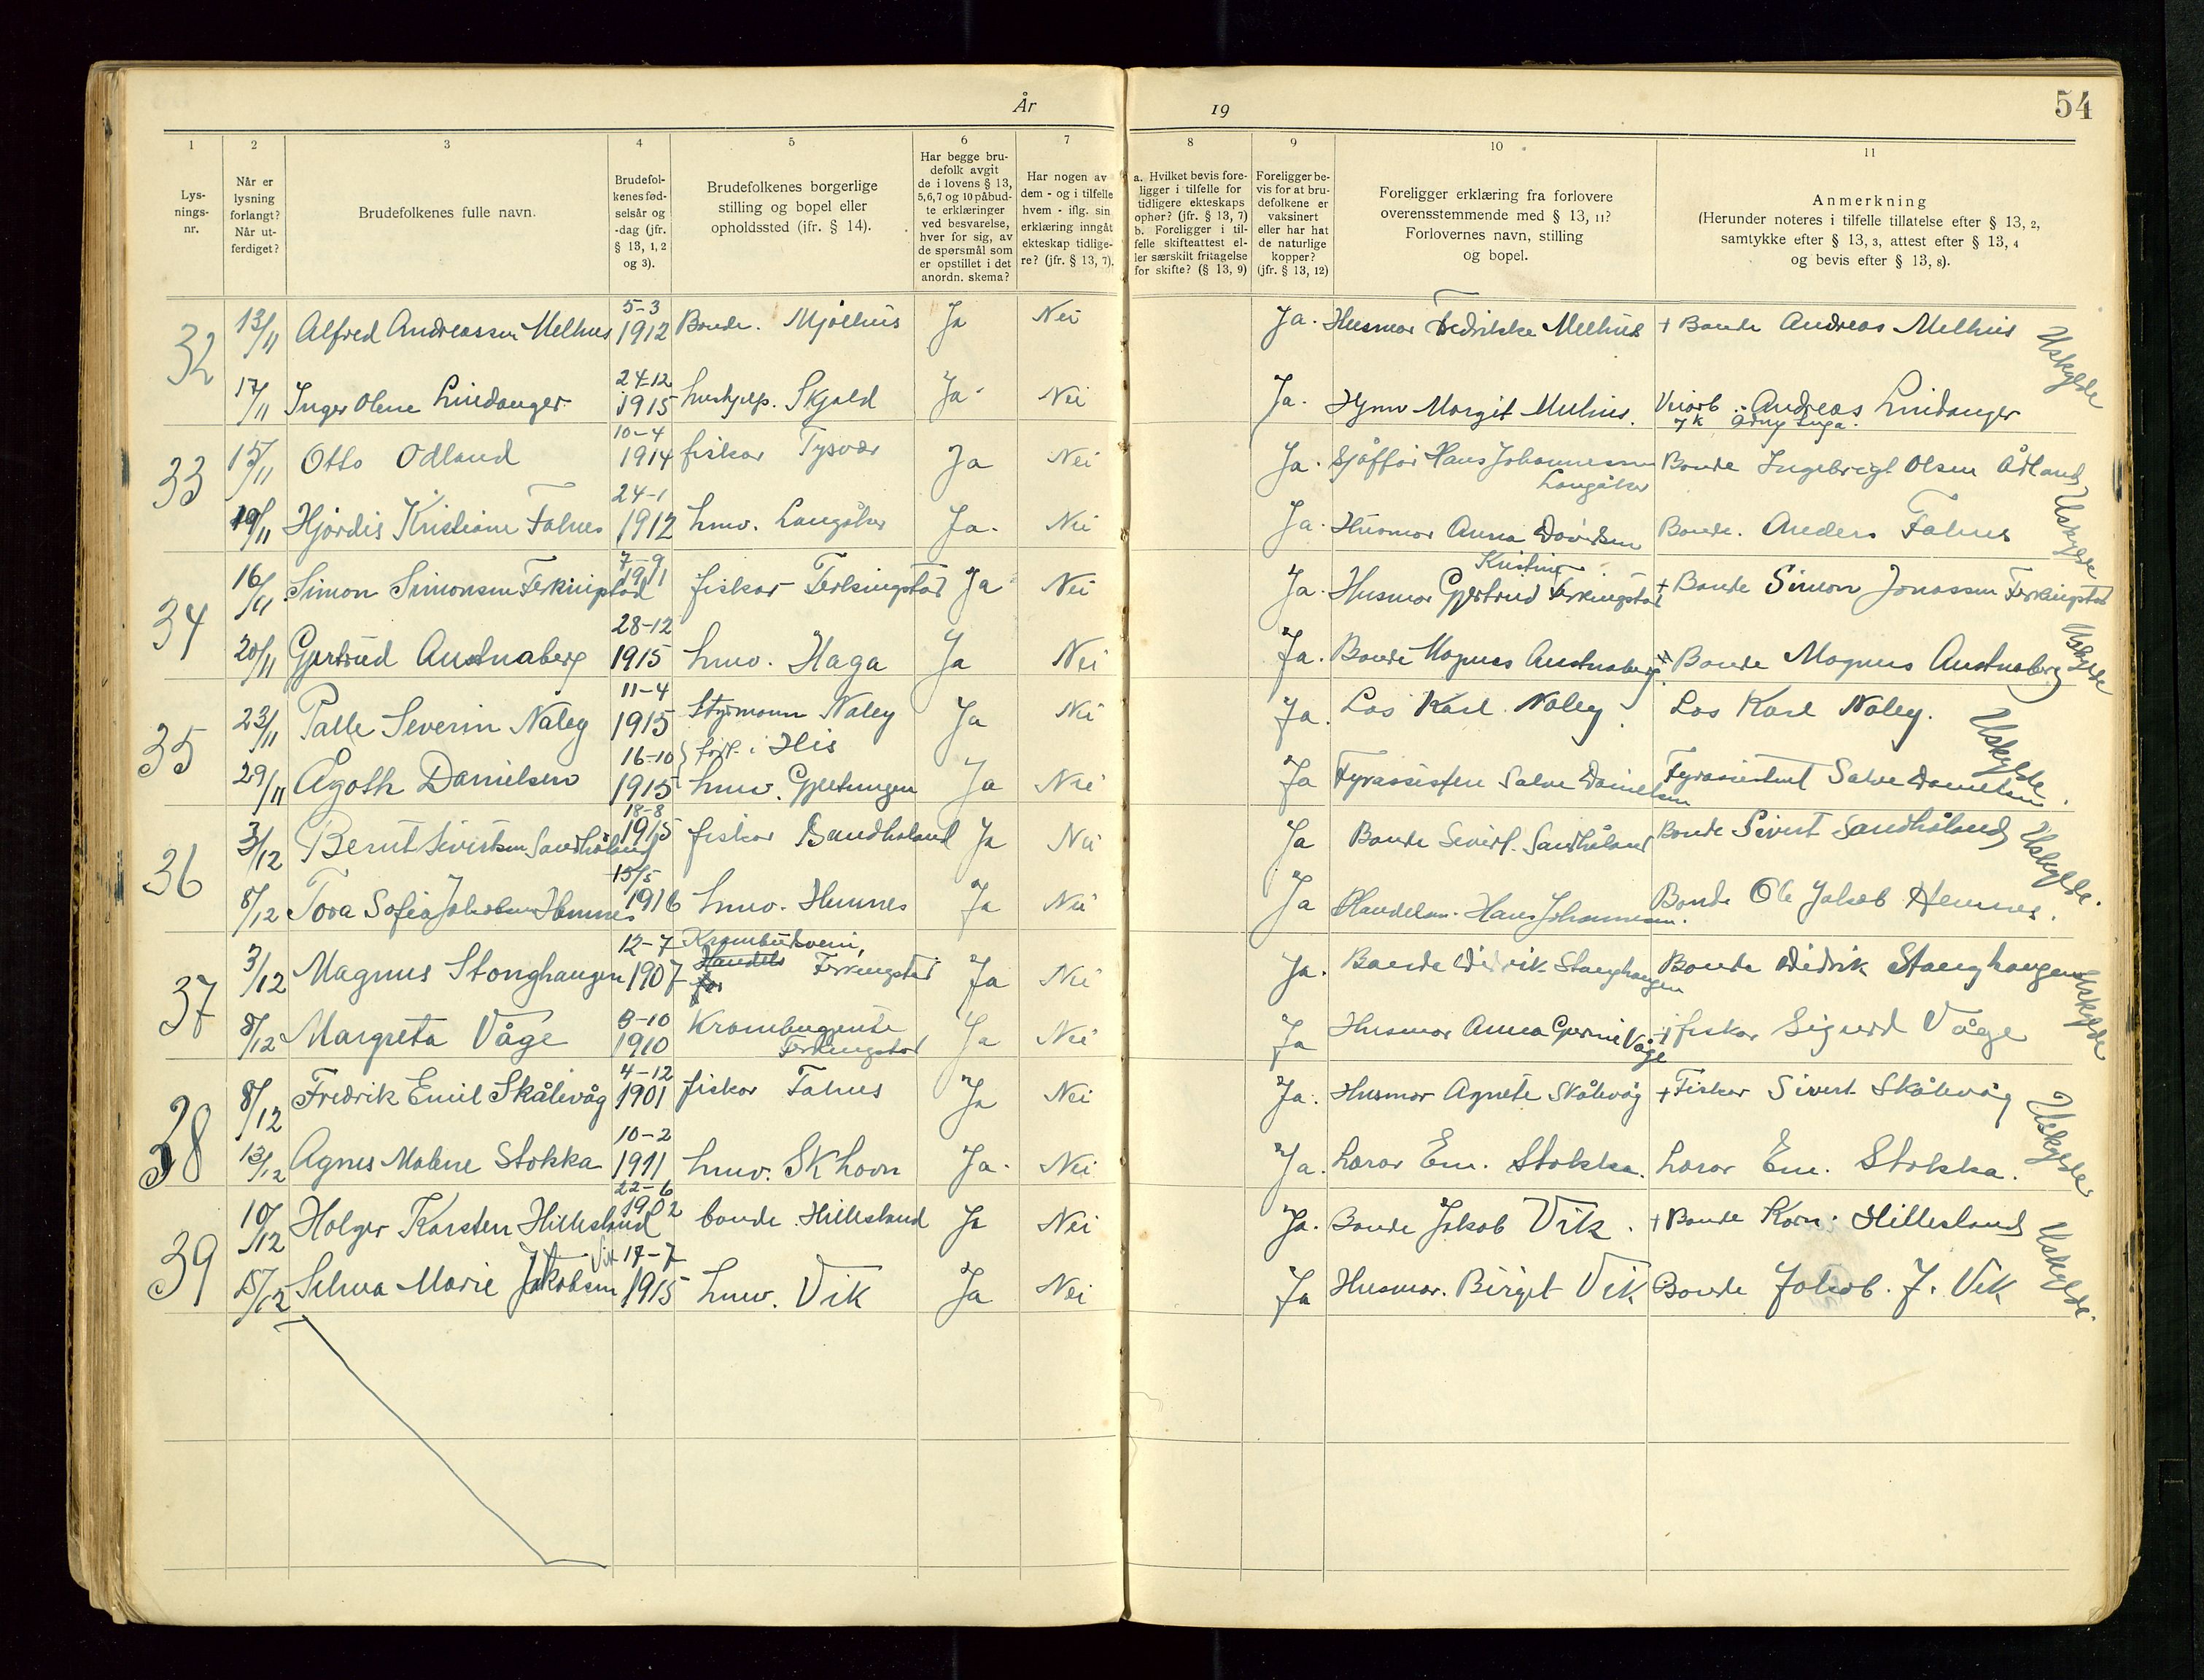 År 19
54
1 2 3 4 5 6 7 8 9 10 11
Lys-
nings-
nr.
Når er
lysning
forlangt?
Når ut-
ferdiget?
Brudefolkenes fulle navn.
Brudefol-
kenes fød-
selsår og
-dag (jfr.
§ 13, 1, 2
og 3).
Brudefolkenes borgerlige
stilling og bopel eller
opholdssted (jfr. § 14).
Har begge bru-
defolk avgit
de i lovens § 13,
5,6,7 og 10 påbud-
te erklæringer
ved besvarelse,
hver for sig, av
de spørsmål som
er opstillet i det
anordn. skema?
Har nogen av
dem - og i tilfelle
hvem - iflg. sin
erklæring inngåt
ekteskap tidlige-
re? (jfr. § 13, 7).
a. Hvilket bevis fore-
ligger i tilfelle for
tidligere ekteskaps
ophør? (jfr. § 13, 7)
b. Foreligger i til-
felle skifteattest el-
ler særskilt fritagelse
for skifte? (§ 13, 9)
Foreligger be-
vis for at bru-
defolkene er
vaksinert
eller har hat
de naturlige
kopper?
(jfr. § 13, 12)
Foreligger erklæring fra forlovere
overensstemmende med § 13, 11?
Forlovernes navn, stilling
og bopel.
Anmerkning
(Herunder noteres i tilfelle tillatelse efter § 13, 2,
samtykke efter § 13, 3, attest efter § 13, 4
og bevis efter § 13, 8).
32 13/11 Alfred Andreassen Melhus 5-3 1912 Bonde. Mjølhus Ja Nei Ja. Husmor Fedrikke Melhus + Bonde Andreas Melhus Uskylde
17/11 Inger Olene Lindanger 24-12 1915 hushjelp. Skjold Ja Nei Ja. Margit Melhus. Andreas Lindanger
33 15/11 Otto Odland 10-4 1914 fisker Tysvær Ja Nei Ja. Sjåffør Hans Johannessen Langåker Bonde Ingebrigt Olsen Ådland Uskylde
19/11 Hjørdis Kristiane Falnes 24-1 1912 hmv. Langåker Ja. Nei Ja. Husmor Anna Davidsen Bonde. Anders Falnes
34 16/11 Simon Simonsen Ferkingstad 7-9 1911 fisker Ferkingstad Ja Nei Ja. Husmor Gjertrud Kristine Ferkingstad + Bonde Simon Jonassen Ferkingstad Uskylde
20/11 Gjertrud Austnaberg 28-12 1915 hmv. Haga Ja Nei Ja. Bonde Magnus Austnaberg Bonde Magnus Austnaberg
35 23/11 Palle Severin Naley 11-4 1915 Styrmann Naley Ja Nei Ja. Los Karl Naley. Los Karl Naley. Uskylde
29/11 Agoth Danielsen 16-10 1915 i His hmv. Ja Nei Ja Fyrassisten Salve Danielsen Fyrassistent Salve Danielsen.
36 3/12 Bernt Sivertsen Sandhåland 18-8 1915 fisker Sandhåland Ja Nei Ja Bonde Sivert Sandhåland Bonde Sivert Sandhåland Uskylde.
8/12 Tora Sofia Jakobsen Hemnes 15/5 1916 hmv. Hemnes Ja Nei Ja Handelsm. Hans Johannessen. Bonde Ole Jakob Hemnes.
37 3/12 Magnus Stonghaugen 12-7 1907 Krambudsveni, Handels for Ferkingstad Ja Nei Ja. Bonde Didrik Stanghaugen Bonde Didrik Stanghaugen Uskylde
8/12 Margreta Våge 3-10 1910 Krambugjente Ferkingstad Ja Nei Ja Husmor Anna Gurine Våge + fisker Sigurd Våge
38 8/12 Fredrik Emil Skålevåg 4-12 1901 fisker Falnes Ja Nei Ja. Husmor Agnete Skålevåg + Fisker Sivert Skålevåg Uskylde
13/12 Agnes Malene Stokka 10-2 1911 hmv. Sk havn Ja. Nei Ja. Lærer Em. Stokka. Lærer Em. Stokka.
39 10/12 Holger Karsten Hillesland 22-6 1902 bonde Hillesland Ja Nei Ja. Bonde Jakob Vik. + Bonde Korn. Hillesland Uskylde.
15/12 Selma Marie Jakobsen Vik 17-7 1915 hmv. Vik Ja Nei Ja Husmor. Birgit Vik Bonde Jakob. J. Vik